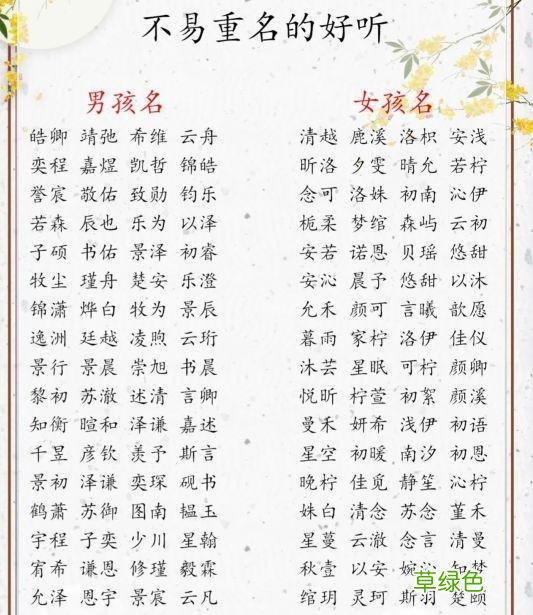 不易重名的好听
男孩名 女孩名
皓卿 靖弛 希维 云舟 清越 鹿溪 洛枳 安浅
奕程 嘉煜 凯哲 锦皓 昕洛 夕雯 晴允 若柠
誉宸 敬佑 致勋 钧乐 念可 洛姝 初南 沁伊
若森 辰也 乐为 以泽 栀柔 梦绾 森屿 云初
子硕 书佑 景泽 初睿 安若 诺恩 贝瑶 悠甜
牧尘 瑾舟 楚安 乐澄 安沁 晨予 悠甜 以沐
锦潇 烨白 牧为 景辰 允禾 颜可 言曦 歆愿
逸洲 廷越 凌煦 云珩 暮雨 家柠 洛伊 佳仪
景行 景晨 崇旭 书晨 沐芸 星眠 可柠 颜卿
黎初 苏澈 述清 言卿 悦昕 柠萱 初絮 颜溪
知衡 暄和 泽谦 嘉述 曼禾 妍希 浅伊 初语
千昱 彦钦 羡予 斯言 星空 初暖 南汐 初恩
景初 泽谦 奕琛 砚书 晚柠 佳觅 静笙 沁柠
鹤萧 苏御 图南 韫玉 姝白 清念 苏念 堇禾
宇程 子奕 少川 星翰 星蔓 云澈 念言 清曼
宥希 谦恩 修瑾 毅霖 秋壹 以安 婉沁 知梦
允泽 恩宇 景宸 云凡 绾玥 灵珂 斯羽 楚颐
草绿色